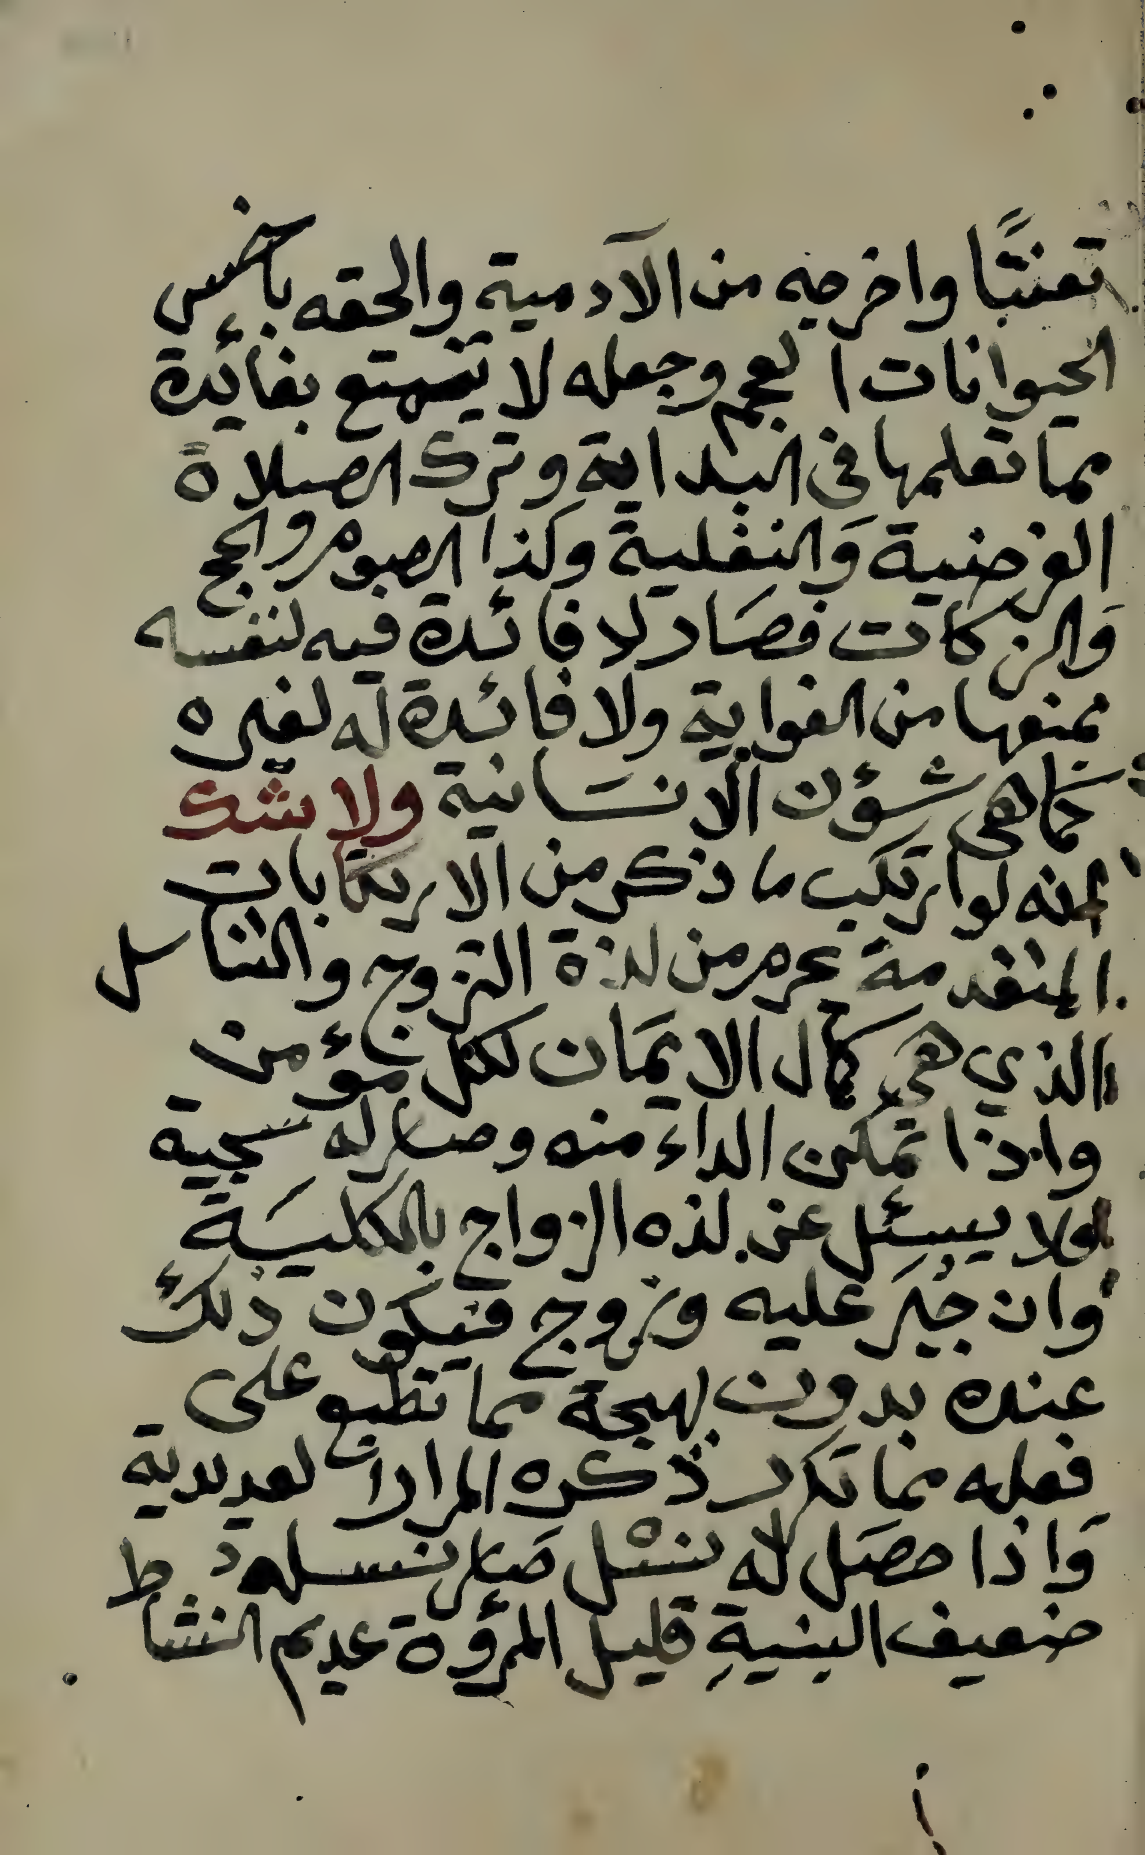 تعنتًا واخرجه من الآدمية والحقه باخس
الحيوانات العجم وجعله لا يتمتع بفائدة
مما تعلمها في البداية وترك الصلاة
الفرضية وَالنفلية وكذا الصوم والحج
وَالزكات فصَار لا فائدة فيه لنفسه
يمنعها من الغواية ولا فائدة له لغيره
كما هي شؤن الانسَانية ولا شك
انه لو ارتكب ما ذكر من الارتكابات
المتقدمة حرم من لذة التزوج والتناسل
الذي هي كمال الايمَان لكل مؤمن
واذا تمكن الداء منه وصار له سجية
ولا يسئل عن لذه الزواج بالكليَة
وان جُبِرَ عليه وتزوج فيكون ذلك
عنده بدون بهجة مما تطبع على
فعله مما تكرر ذكره المرارات لعديدية
وَاذا حصَل له نسْل صَار نسله
ضعيف البنيةِ قليل المرؤة عديم النشاط